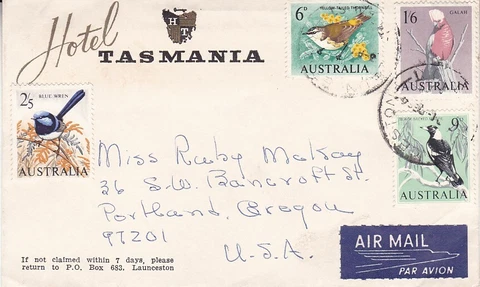 Hotel
H T
TASMANIA
6D
YELLOW-TAILED THORNBILL
AUSTRALIA
1'6
GALAH
AUSTRALIA
2'5
BLUE WREN
AUSTRALIA
9D
AUSTRALIA
Miss Ruby McKay
26 S.W. Bancroft St.
Portland, Oregon
97201
U.S.A.
If not claimed within 7 days, please
return to P.O. Box 683, Launceston
AIR MAIL
PAR AVION